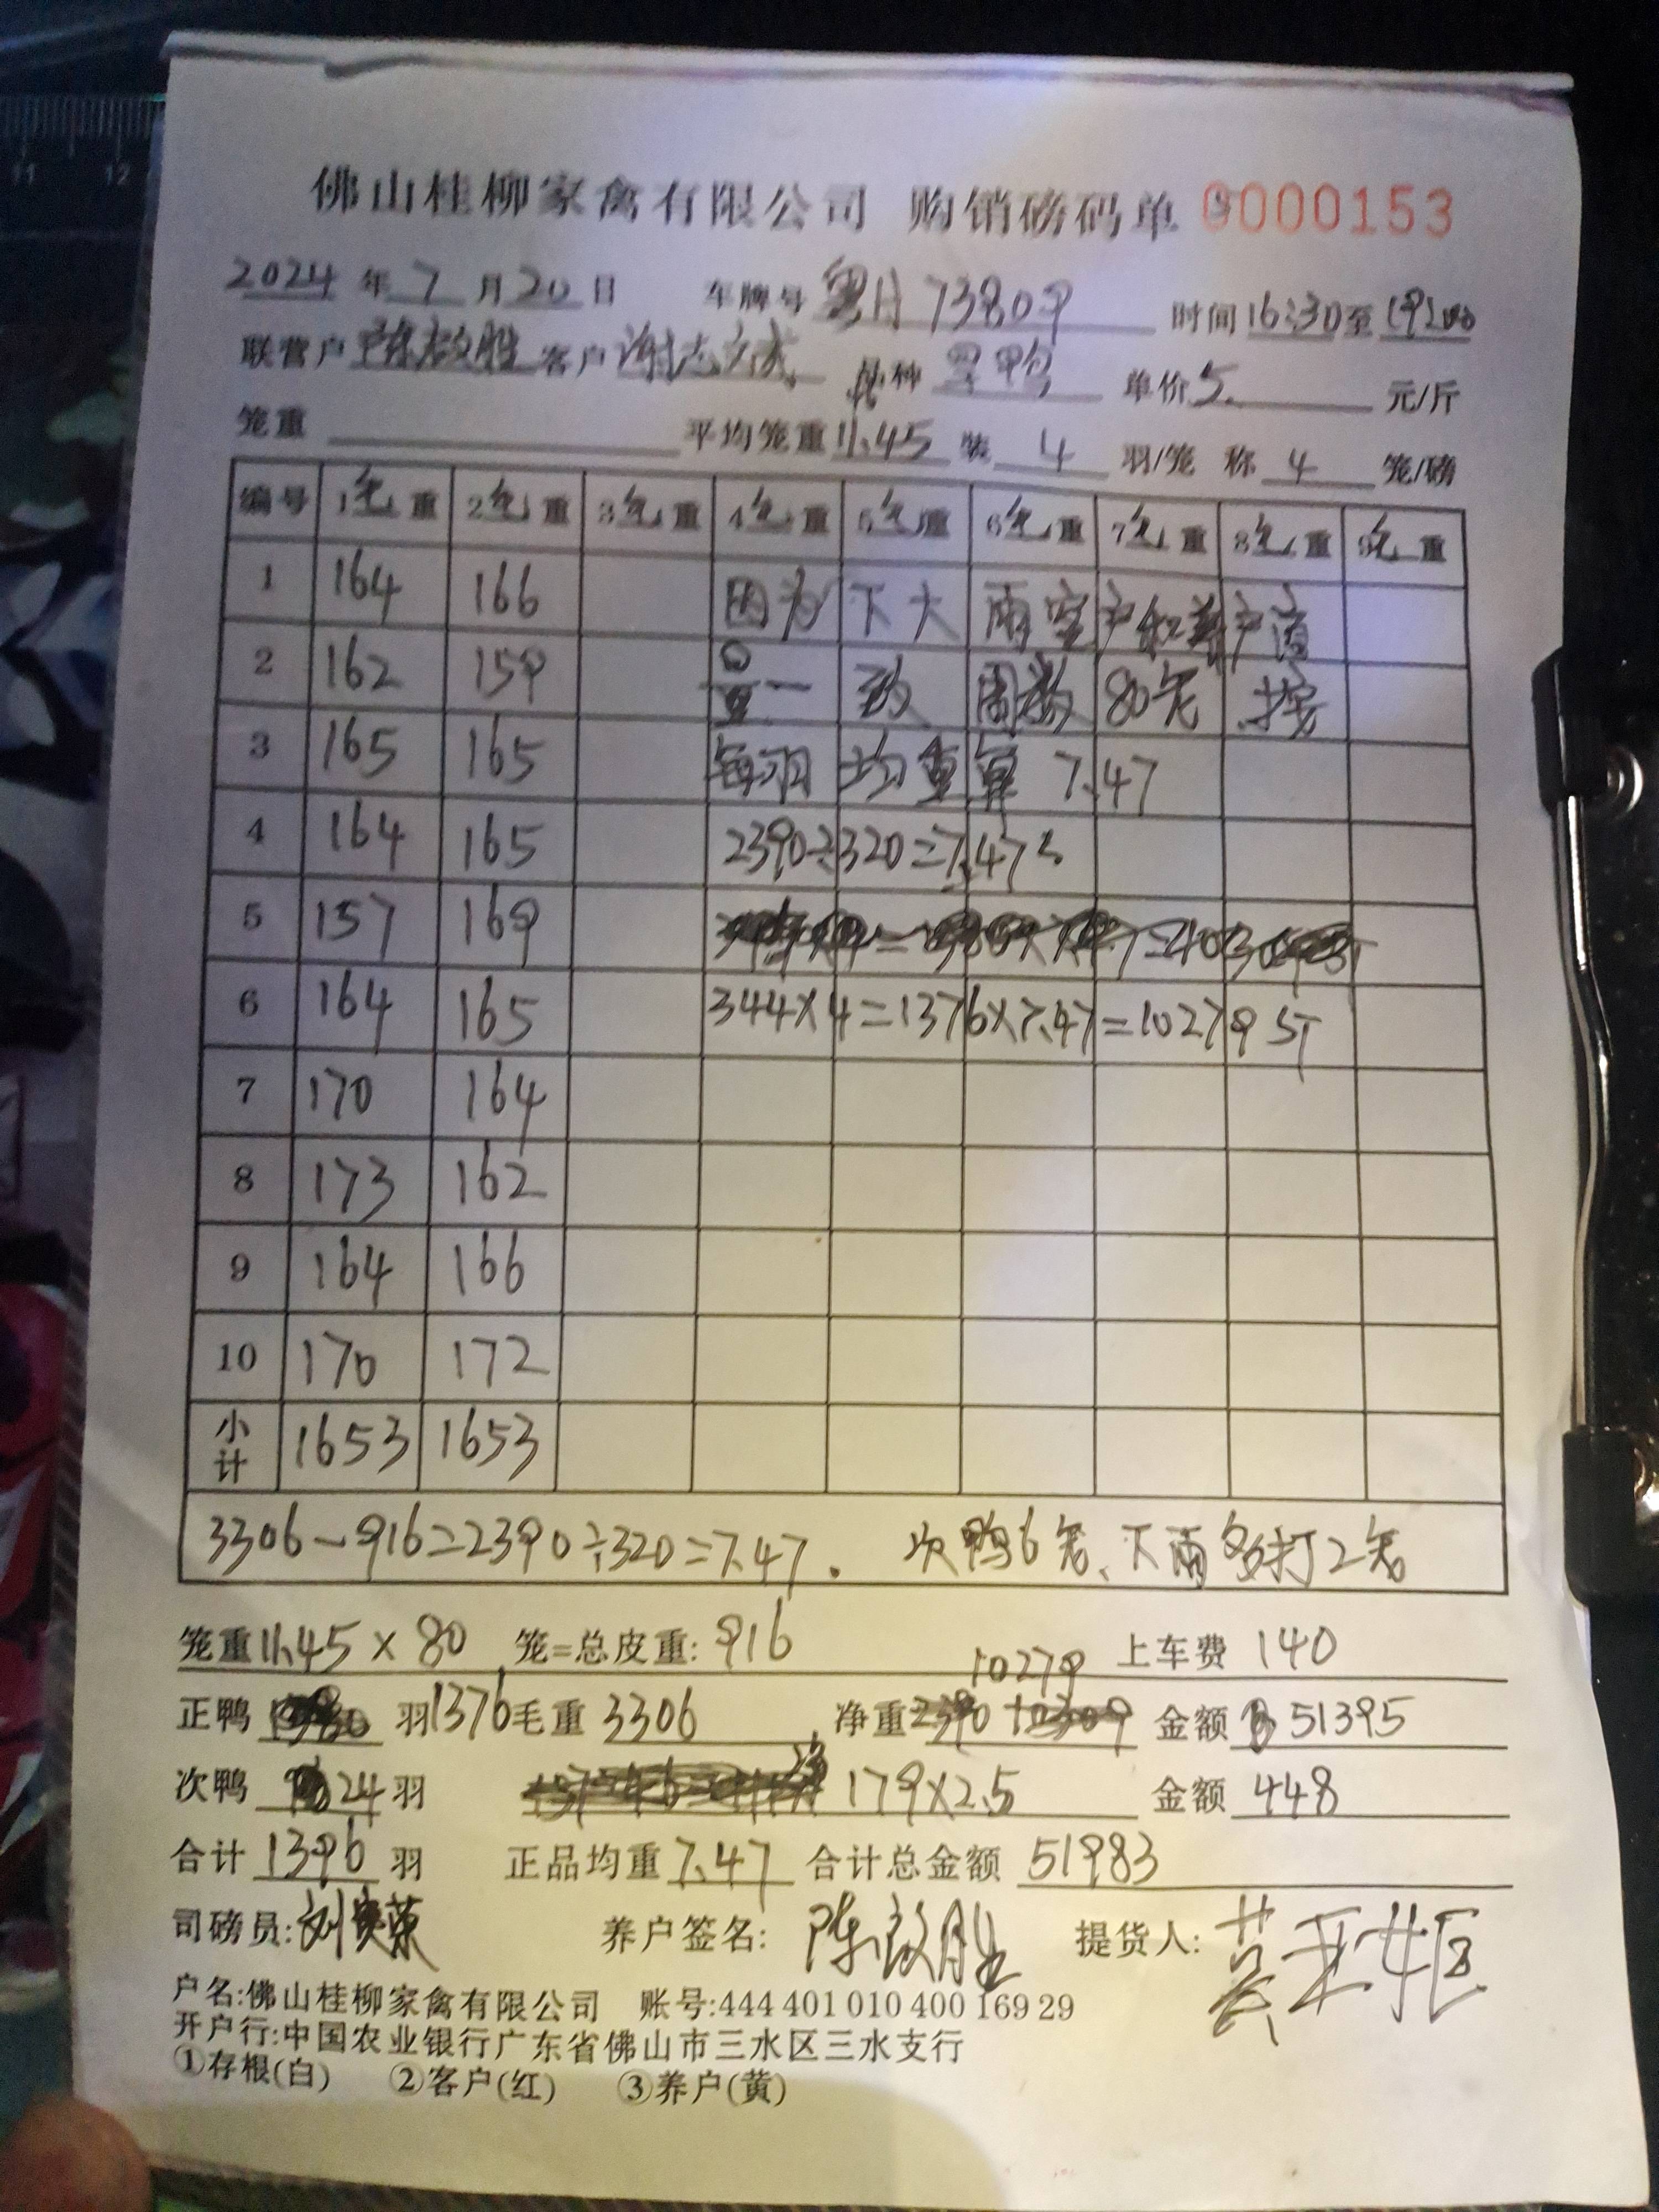 佛山桂柳家禽有限公司 购销磅码单 0000153
2024年7月20日 车牌号 粤A73809 时间16:30至19:00
联营户 陈啟胜 客户 谢志成 品种 旱鸭 单价5. 元/斤
笼重 平均笼重11.45 装4羽/笼 称4笼/磅
编号 1笼重 2笼重 3笼重 4笼重 5笼重 6笼重 7笼重 8笼重 9笼重
1 164 166 因为下大雨客户和养户商
2 162 159 量一致 80笼 按
3 165 165 每羽均重算 7.47
4 164 165 2390÷320=7.47
5 157 169
6 164 165 344×4=1376×7.47=10279斤
7 170 164
8 173 162
9 164 166
10 170 172
小计 1653 1653
3306-916=2390÷320=7.47. 次鸭6笼、下雨多打2笼
笼重11.45×80 笼=总皮重:916 上车费 140
10279
正鸭 羽1376毛重 3306 净重2390 金额 51395
次鸭 24羽 179×2.5 金额 448
合计1396羽 正品均重7.47 合计总金额 51983
司磅员:刘 养户签名:陈啟胜 提货人:
户名:佛山桂柳家禽有限公司 账号:444 401 010 400 169 29
开户行:中国农业银行广东省佛山市三水区三水支行
①存根(白) ②客户(红) ③养户(黄)
11 12